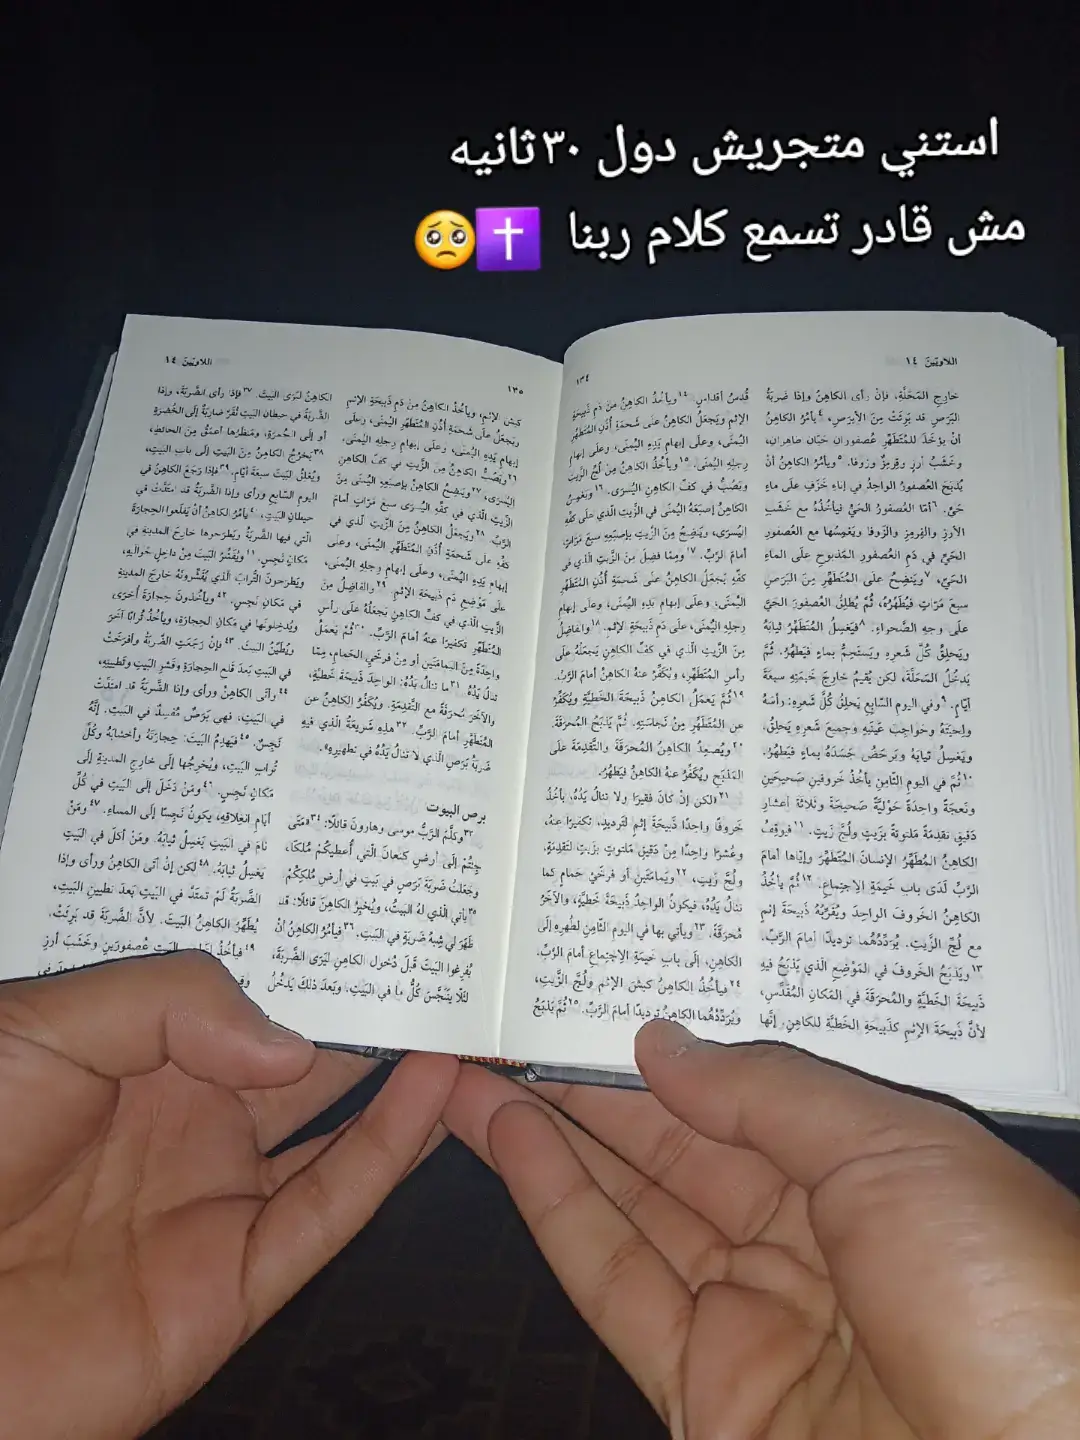 استني متجريش دول ٣٠ثانيه
مش قادر تسمع كلام ربنا ✝️🥺
اللاويّينَ ١٤
١٣٤
خارِجِ المَحَلَّةِ، فإنْ رأى الكاهِنُ وإذا ضَربَةُ
البَرَصِ قد بَرِئَتْ مِنَ الأبرَصِ، ٤يأمُرُ الكاهِنُ
أنْ يؤخَذَ للمُتَطَهِّرِ عُصفورانِ حَيّانِ طاهِرانِ،
وخَشَبُ أرزٍ وقِرمِزٌ وزوفا. ٥ويأمُرُ الكاهِنُ أنْ
يُذبَحَ العُصفورُ الواحِدُ في إناءِ خَزَفٍ علَى ماءٍ
حَيٍّ. ٦أمّا العُصفورُ الحَيُّ فيأخُذُهُ مع خَشَبِ
الأرزِ والقِرمِزِ والزّوفا ويَغمِسُها مع العُصفورِ
الحَيِّ في دَمِ العُصفورِ المَذبوحِ علَى الماءِ
الحَيِّ، ٧ويَنضِحُ علَى المُتَطَهِّرِ مِنَ البَرَصِ
سبعَ مَرّاتٍ فيُطَهِّرُهُ، ثُمَّ يُطلِقُ العُصفورَ الحَيَّ
علَى وجهِ الصَّحراءِ. ٨فيَغسِلُ المُتَطَهِّرُ ثيابَهُ
ويَحلِقُ كُلَّ شَعرِهِ ويَستَحِمُّ بماءٍ فيَطهُرُ. ثُمَّ
يَدخُلُ المَحَلَّةَ، لكن يُقيمُ خارِجَ خَيمَتِهِ سبعَةَ
أيّامٍ. ٩وفي اليومِ السّابِعِ يَحلِقُ كُلَّ شَعرِهِ: رأسَهُ
ولِحيَتَهُ وحَواجِبَ عَينَيهِ وجميعَ شَعرِهِ يَحلِقُ.
ويَغسِلُ ثيابَهُ ويَرحَضُ جَسَدَهُ بماءٍ فيَطهُرُ.
١٠ثُمَّ في اليومِ الثّامِنِ يأخُذُ خَروفَينِ صَحيحَينِ
ونَعجَةً واحِدَةً حَوليَّةً صَحيحَةً وثَلاثَةَ أعشارِ
دَقيقٍ تقدِمَةً مَلتوتَةً بزَيتٍ ولُجَّ زَيتٍ. ١١فيوقِفُ
الكاهِنُ المُطَهِّرُ الإنسانَ المُتَطَهِّرَ وإيّاها أمامَ
الرَّبِّ لَدَى بابِ خَيمَةِ الِاجتِماعِ. ١٢ثُمَّ يأخُذُ
الكاهِنُ الخَروفَ الواحِدَ ويُقَرِّبُهُ ذَبيحَةَ إثمٍ
مع لُجِّ الزَّيتِ. يُرَدِّدُهُما ترديدًا أمامَ الرَّبِّ.
١٣ويَذبَحُ الخَروفَ في المَوْضِعِ الّذي يَذبَحُ فيهِ
ذَبيحَةَ الخَطيَّةِ والمُحرَقَةَ في المَكانِ المُقَدَّسِ،
لأنَّ ذَبيحَةَ الإثمِ كذَبيحَةِ الخَطيَّةِ للكاهِنِ. إنَّها
قُدسُ أقداسٍ. ١٤ويأخُذُ الكاهِنُ مِنْ دَمِ ذَبيحَةِ
الإثمِ ويَجعَلُ الكاهِنُ علَى شَحمَةِ أُذُنِ المُتَطَهِّرِ
اليُمنَى، وعلَى إبهامِ يَدِهِ اليُمنَى، وعلَى إبهامِ
رِجلِهِ اليُمنَى. ١٥ويأخُذُ الكاهِنُ مِنْ لُجِّ الزَّيتِ
ويَصُبُّ في كفِّ الكاهِنِ اليُسرَى. ١٦ويَغمِسُ
الكاهِنُ إصبَعَهُ اليُمنَى في الزَّيتِ الّذي علَى كفِّهِ
اليُسرَى، ويَنضِحُ مِنَ الزَّيتِ بإصبَعِهِ سبعَ مَرّاتٍ
أمامَ الرَّبِّ. ١٧ومِمّا فضِلَ مِنَ الزَّيتِ الّذي في
كفِّهِ يَجعَلُ الكاهِنُ علَى شَحمَةِ أُذُنِ المُتَطَهِّرِ
اليُمنَى، وعلَى إبهامِ يَدِهِ اليُمنَى، وعلَى إبهامِ
رِجلِهِ اليُمنَى، علَى دَمِ ذَبيحَةِ الإثمِ. ١٨والفاضِلُ
مِنَ الزَّيتِ الّذي في كفِّ الكاهِنِ يَجعَلُهُ علَى
رأسِ المُتَطَهِّرِ، ويُكَفِّرُ عنهُ الكاهِنُ أمامَ الرَّبِّ.
١٩ثُمَّ يَعمَلُ الكاهِنُ ذَبيحَةَ الخَطيَّةِ ويُكَفِّرُ
عن المُتَطَهِّرِ مِنْ نَجاسَتِهِ. ثُمَّ يَذبَحُ المُحرَقَةَ.
٢٠ويُصعِدُ الكاهِنُ المُحرَقَةَ والتَّقدِمَةَ علَى
المَذبَحِ ويُكَفِّرُ عنهُ الكاهِنُ فيَطهُرُ.
٢١لكن إنْ كانَ فقيرًا ولا تنالُ يَدُهُ، يأخُذُ
خَروفًا واحِدًا ذَبيحَةَ إثمٍ لتَرديدٍ، تكفيرًا عنهُ،
وعُشرًا واحِدًا مِنْ دَقيقٍ مَلتوتٍ بزَيتٍ لتَقدِمَةٍ،
ولُجَّ زَيتٍ، ٢٢ويَمامَتَينِ أو فرخَيْ حَمامٍ كما
تنالُ يَدُهُ، فيكونُ الواحِدُ ذَبيحَةَ خَطيَّةٍ، والآخَرُ
مُحرَقَةً. ٢٣ويأتي بها في اليومِ الثّامِنِ لطُهرِهِ إلَى
الكاهِنِ، إلَى بابِ خَيمَةِ الِاجتِماعِ أمامَ الرَّبِّ.
٢٤فيأخُذُ الكاهِنُ كبشَ الإثمِ ولُجَّ الزَّيتِ،
ويُرَدِّدُهُما الكاهِنُ ترديدًا أمامَ الرَّبِّ. ٢٥ثُمَّ يَذبَحُ
اللاويّينَ ١٤
١٣٥
كبشَ الإثمِ، ويأخُذُ الكاهِنُ مِنْ دَمِ ذَبيحَةِ الإثمِ
ويَجعَلُ علَى شَحمَةِ أُذُنِ المُتَطَهِّرِ اليُمنَى، وعلَى
إبهامِ يَدِهِ اليُمنَى، وعلَى إبهامِ رِجلِهِ اليُمنَى.
٢٦ويَصُبُّ الكاهِنُ مِنَ الزَّيتِ في كفِّ الكاهِنِ
اليُسرَى، ٢٧ويَنضِحُ الكاهِنُ بإصبَعِهِ اليُمنَى مِنَ
الزَّيتِ الّذي في كفِّهِ اليُسرَى سبعَ مَرّاتٍ أمامَ
الرَّبِّ. ٢٨ويَجعَلُ الكاهِنُ مِنَ الزَّيتِ الّذي في
كفِّهِ علَى شَحمَةِ أُذُنِ المُتَطَهِّرِ اليُمنَى، وعلَى
إبهامِ يَدِهِ اليُمنَى، وعلَى إبهامِ رِجلِهِ اليُمنَى،
علَى مَوْضِعِ دَمِ ذَبيحَةِ الإثمِ. ٢٩والفاضِلُ مِنَ
الزَّيتِ الّذي في كفِّ الكاهِنِ يَجعَلُهُ علَى رأسِ
المُتَطَهِّرِ تكفيرًا عنهُ أمامَ الرَّبِّ. ٣٠ثُمَّ يَعمَلُ
واحِدَةً مِنَ اليَمامَتَينِ أو مِنْ فرخَيِ الحَمامِ، مِمّا
تنالُ يَدُهُ. ٣١ما تنالُ يَدُهُ: الواحِدَ ذَبيحَةَ خَطيَّةٍ،
والآخَرَ مُحرَقَةً مع التَّقدِمَةِ. ويُكَفِّرُ الكاهِنُ عن
المُتَطَهِّرِ أمامَ الرَّبِّ. ٣٢هذِهِ شَريعَةُ الّذي فيهِ
ضَربَةُ بَرَصٍ الّذي لا تنالُ يَدُهُ في تطهيرِهِ».
برص البيوت
٣٣وكلَّمَ الرَّبُّ موسَى وهارونَ قائلًا: ٣٤«مَتَى
جِئتُمْ إلَى أرضِ كنعانَ الّتي أُعطيكُمْ مُلكًا،
وجَعَلتُ ضَربَةَ بَرَصٍ في بَيتٍ في أرضِ مُلكِكُمْ.
٣٥يأتي الّذي لهُ البَيتُ، ويُخبِرُ الكاهِنَ قائلًا: قد
ظَهَرَ لي شِبهُ ضَربَةٍ في البَيتِ. ٣٦فيأمُرُ الكاهِنُ أنْ
يُفرِغوا البَيتَ قَبلَ دُخولِ الكاهِنِ ليَرَى الضَّربَةَ،
لئَلّا يتَنَجَّسَ كُلُّ ما في البَيتِ. وبَعدَ ذلكَ يَدخُلُ
الكاهِنُ ليَرَى البَيتَ. ٣٧فإذا رأى الضَّربَةَ، وإذا
الضَّربَةُ في حيطانِ البَيتِ نُقَرٌ ضارِبَةٌ إلَى الخُضرَةِ
أو إلَى الحُمرَةِ، ومَنظَرُها أعمَقُ مِنَ الحائطِ،
٣٨يَخرُجُ الكاهِنُ مِنَ البَيتِ إلَى بابِ البَيتِ،
ويُغلِقُ البَيتَ سبعَةَ أيّامٍ. ٣٩فإذا رَجَعَ الكاهِنُ في
اليومِ السّابِعِ ورأى وإذا الضَّربَةُ قد امتَدَّتْ في
حيطانِ البَيتِ، ٤٠يأمُرُ الكاهِنُ أنْ يَقلَعوا الحِجارَةَ
الّتي فيها الضَّربَةُ ويَطرَحوها خارِجَ المدينةِ في
مَكانٍ نَجِسٍ. ٤١ويُقَشِّرُ البَيتَ مِنْ داخِلٍ حَوالَيهِ،
ويَطرَحونَ التُّرابَ الّذي يُقَشِّرونَهُ خارِجَ المدينةِ
في مَكانٍ نَجِسٍ. ٤٢ويأخُذونَ حِجارَةً أُخرَى
ويُدخِلونَها في مَكانِ الحِجارَةِ، ويأخُذُ تُرابًا آخَرَ
ويُطَيِّنُ البَيتَ. ٤٣فإنْ رَجَعَتِ الضَّربَةُ وأفرَخَتْ
في البَيتِ بَعدَ قَلعِ الحِجارَةِ وقَشرِ البَيتِ وتَطيينِهِ،
٤٤وأتَى الكاهِنُ ورأى وإذا الضَّربَةُ قد امتَدَّتْ
في البَيتِ، فهي بَرَصٌ مُفسِدٌ في البَيتِ. إنَّهُ
نَجِسٌ. ٤٥فيَهدِمُ البَيتَ: حِجارَتَهُ وأخشابَهُ وكُلَّ
تُرابِ البَيتِ، ويُخرِجُها إلَى خارِجِ المدينةِ إلَى
مَكانٍ نَجِسٍ. ٤٦ومَنْ دَخَلَ إلَى البَيتِ في كُلِّ
أيّامِ انغِلاقِهِ، يكونُ نَجِسًا إلَى المساءِ. ٤٧ومَنْ
نامَ في البَيتِ يَغسِلُ ثيابَهُ. ومَنْ أكلَ في البَيتِ
يَغسِلُ ثيابَهُ. ٤٨لكن إنْ أتَى الكاهِنُ ورأى وإذا
الضَّربَةُ لَمْ تمتَدَّ في البَيتِ بَعدَ تطيينِ البَيتِ،
يُطَهِّرُ الكاهِنُ البَيتَ. لأنَّ الضَّربَةَ قد بَرِئَتْ.
٤٩فيأخُذُ البَيتِ عُصفورَينِ وخَشَبَ أرزٍ